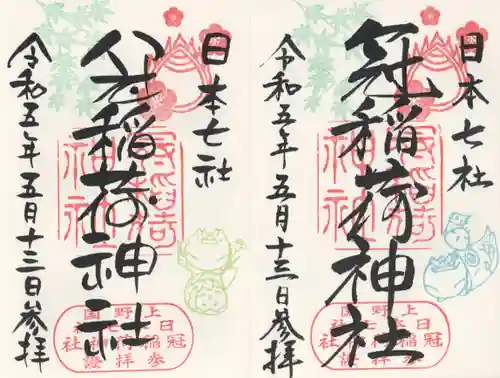 日本七社
冠稲荷神社
令和五年五月十三日参拝
上野国
日本七社
冠稲荷神社
参拝證
日本七社
稲荷神社
令和五年五月十三日参拝
上野国
日本七社
冠稲荷神社
参拝證